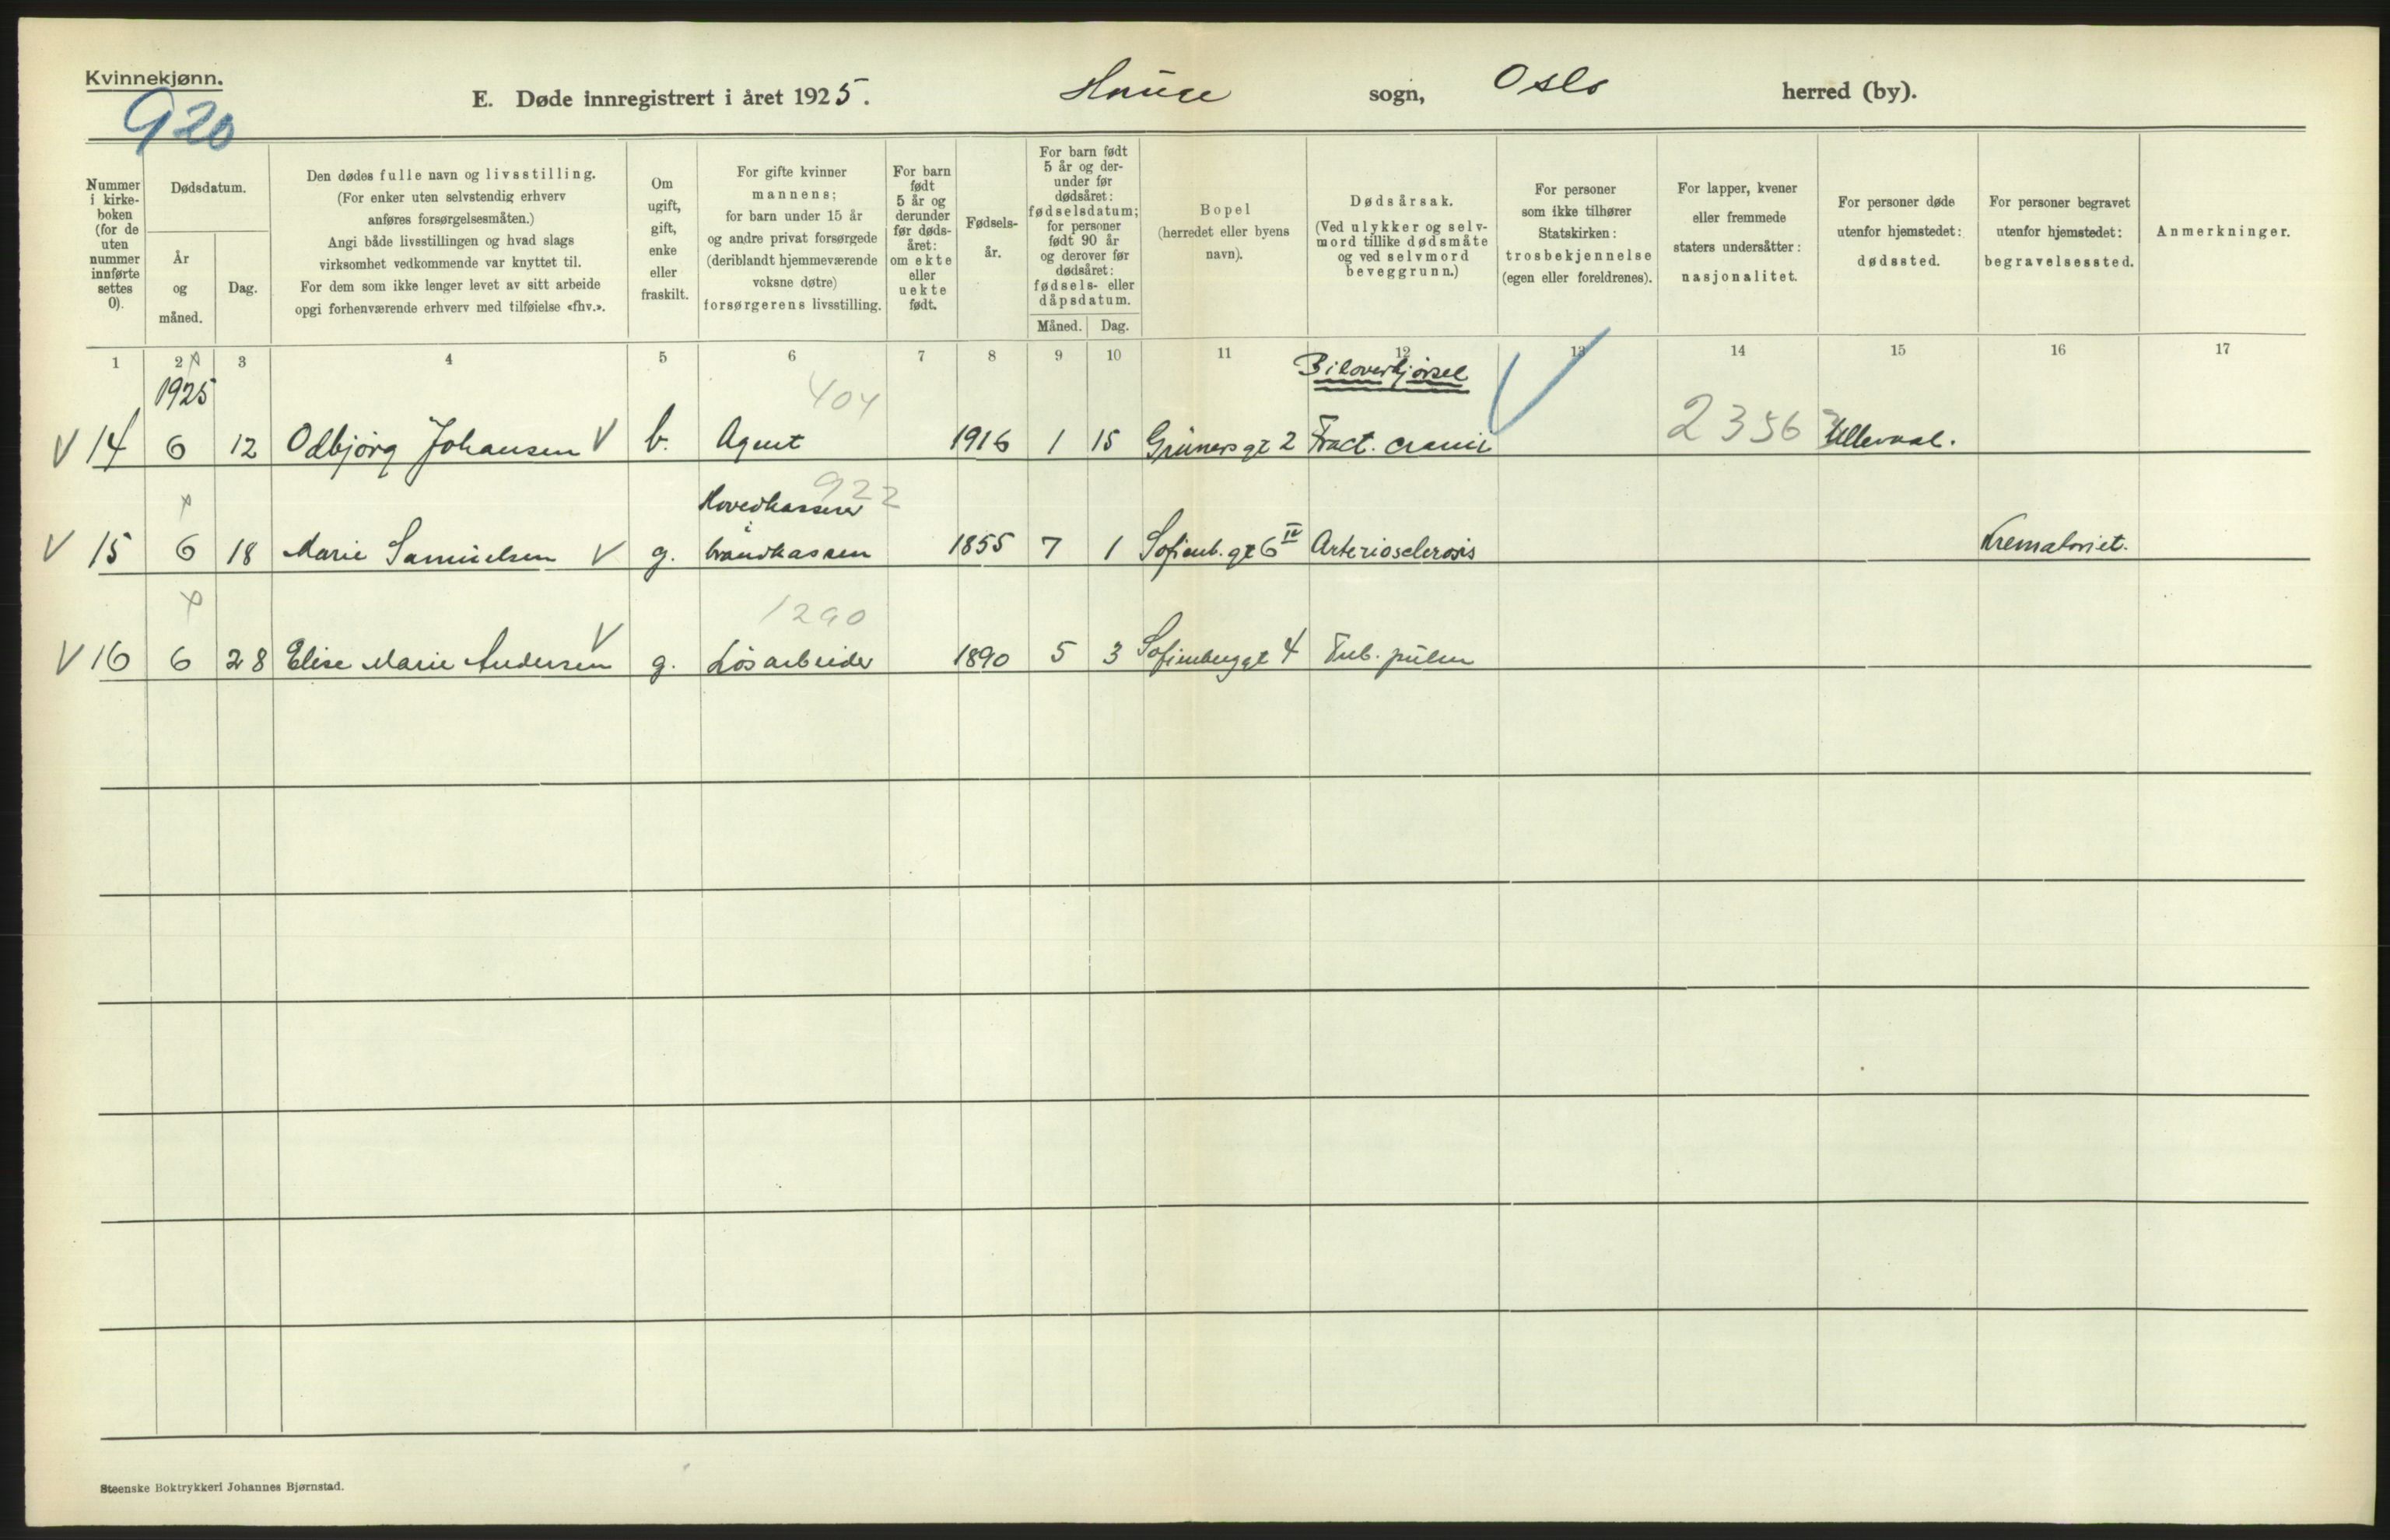 Kvinnekjønn.
920
E. Døde innregistrert i året 1925. Hauge sogn, Oslo herred (by).
Nummer i kirke-boken (for de uten nummer innførte settes 0).
Dødsdatum.
År og måned.
Dag.
Den dødes fulle navn og livsstilling.
(For enker uten selvstendig erhverv
anføres forsørgelsesmåten.)
Angi både livsstillingen og hvad slags
virksomhet vedkommende var knyttet til.
For dem som ikke lenger levet av sitt arbeide
opgi forhenværende erhverv med tilføielse «fhv.».
Om
ugift,
gift,
enke
eller
fraskilt.
For gifte kvinner
mannens;
for barn under 15 år
og andre privat forsørgede
(deriblandt hjemmeværende
voksne døtre)
forsørgerens livsstilling.
For barn
født
5 år og
derunder
før døds-
året:
om ekte
eller
uekte
født.
Fødsels-
år.
For barn født
5 år og der-
under før
dødsåret:
fødselsdatum;
for personer
født 90 år
og derover før
dødsåret:
fødsels- eller
dåpsdatum.
Måned. Dag.
Bopel
(herredet eller byens
navn).
Dødsårsak.
(Ved ulykker og selv-
mord tillike dødsmåte
og ved selvmord
beveggrunn.)
For personer
som ikke tilhører
Statskirken:
trosbekjennelse
(egen eller foreldrenes).
For lapper, kvener
eller fremmede
staters undersåtter:
nasjonalitet.
For personer døde
utenfor hjemstedet:
dødssted.
For personer begravet
utenfor hjemstedet:
begravelsessted.
Anmerkninger.
1 2 3 4 5 6 7 8 9 10 11 12 13 14 15 16 17
1925 404 Biloverkjørsel
V 14 6 12 Odbjørg Johansen V b. Agent 1916 1 15 Grüners gt 2 Fract. cranii 2356 Ullevaal.
Hovedkasserer 922
i
V 15 6 18 Marie Samuelsen V g. brandkassen 1855 7 1 Sofienb. gt 6 IV Arteriosclerosis Krematoriet.
1290
V 16 6 28 Elise Marie Andersen V g. Løsarbeider 1890 5 3 Sofienberggt 4 Tub. pulm
Steenske Boktrykkeri Johannes Bjørnstad.